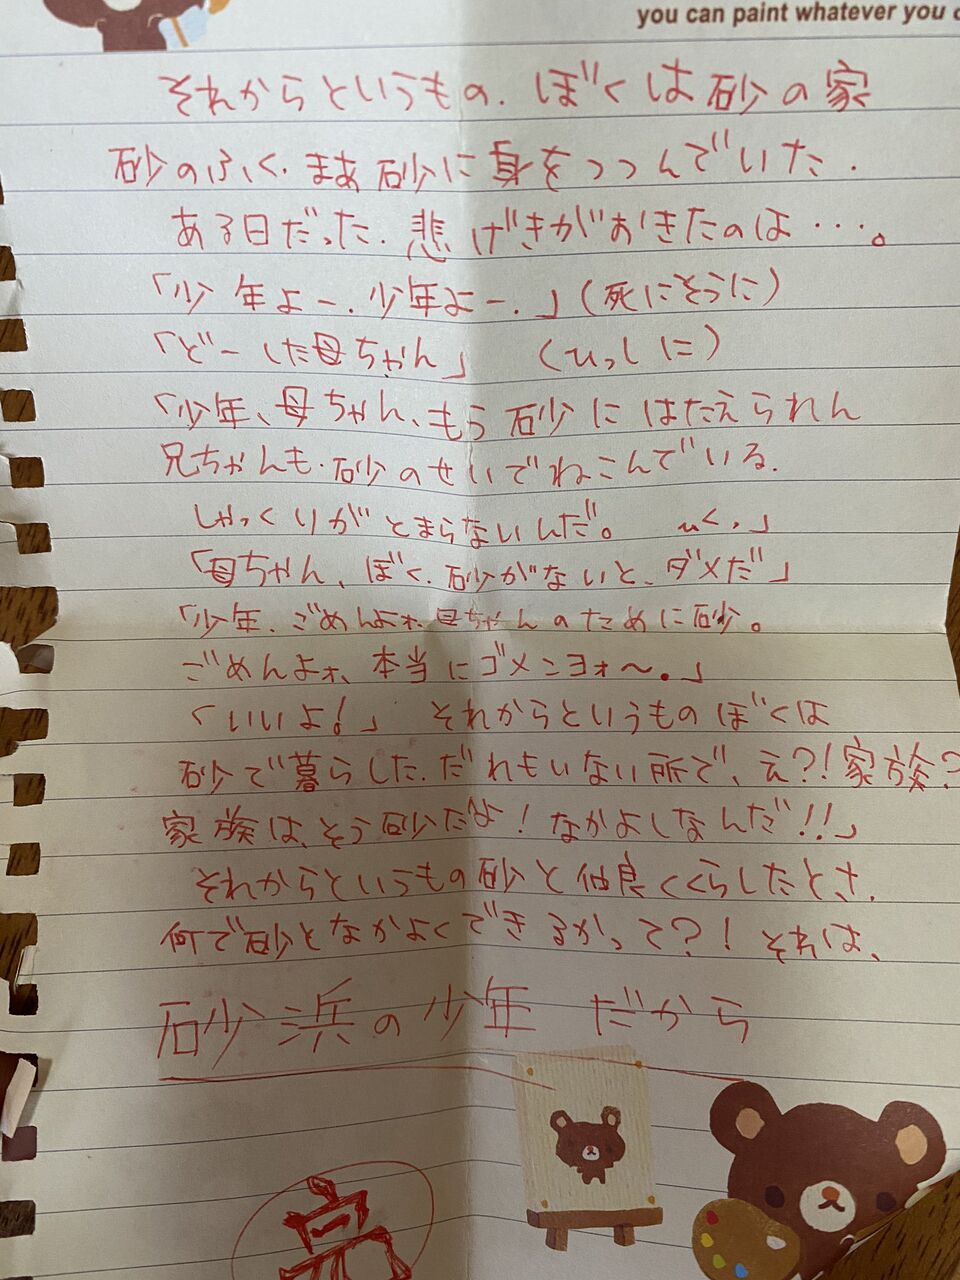 you can paint whatever you
それからというもの.ぼくは砂の家
砂のふく.まあ砂に身をつつんでいた.
ある日だった.悲げきがおきたのは・・・。
「少年よー.少年よー.」(死にそうに)
「どーした母ちゃん」 (ひっしに)
「少年、母ちゃん、もう砂にはたえられん
兄ちゃんも.砂のせいでねこんでいる.
しゃっくりがとまらないんだ。 ひく.」
「母ちゃん、ぼく.砂がないと、ダメだ」
「少年.ごめんよォ.母ちゃんのために砂。
ごめんよォ、本当にゴメンヨォ〜.」
「いいよ!」 それからというものぼくは
砂で暮らした.だれもいない所で、え?!家族?
家族は、そう砂だよ!なかよしなんだ!!」
それからというもの砂と仲良くくらしたとさ.
何で砂となかよくできるかって?!それは、
砂浜の少年 だから
完